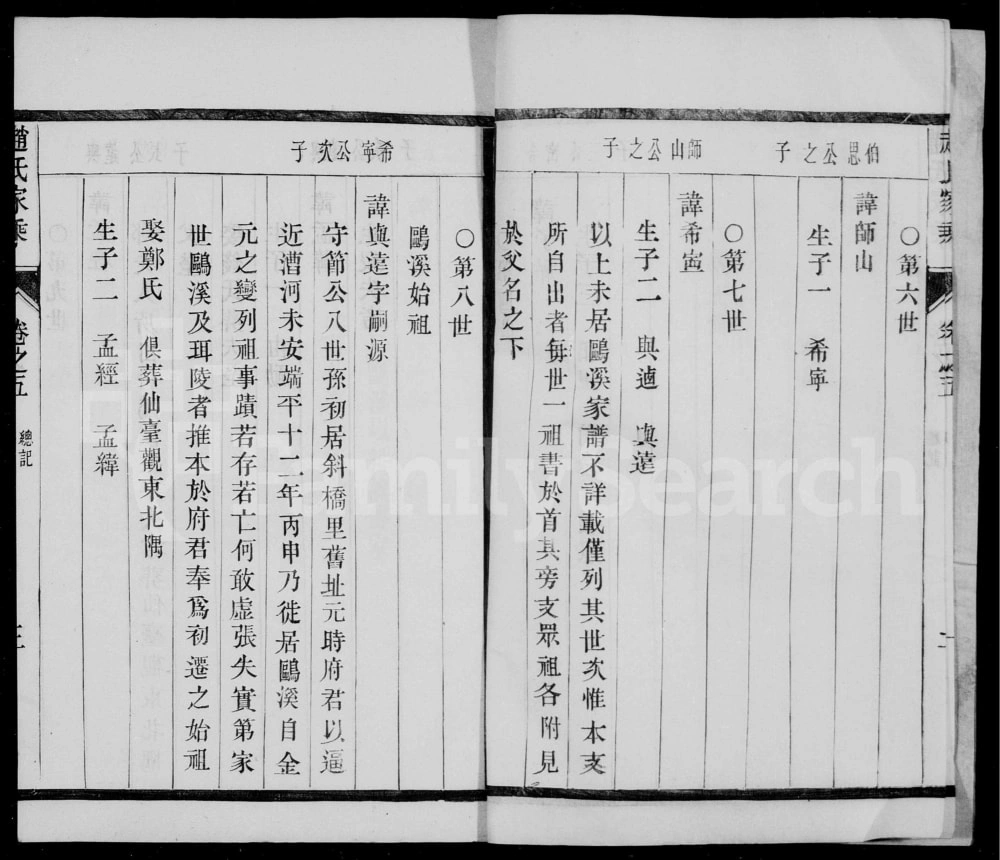 伯思公之子
○第六世
諱師山
生子一 希寧
師山公之子
○第七世
諱希寍
生子二 與逈 與蓮
以上未居鷗溪家譜不詳載僅列其世次惟本支
所自出者每世一祖書於首其旁支眾祖各附見
於父名之下
希寧公次子
○第八世
鷗溪始祖
諱與蓮字嗣源
守節公八世孫初居斜橋里舊址元時府君以逼
近漕河未安端平十二年丙申乃徙居鷗溪自金
元之變列祖事蹟若存若亡何敢虛張失實第家
世鷗溪及珥陵者推本於府君奉爲初遷之始祖
娶鄭氏 俱葬仙臺觀東北隅
生子二 孟經 孟緯
趙氏家乘
卷之五
總記
三
FamilySearch